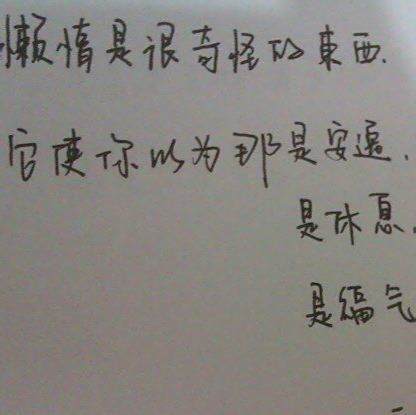 懒惰是很奇怪的東西.
它使你以为那是安逸.
是休息.
是福气